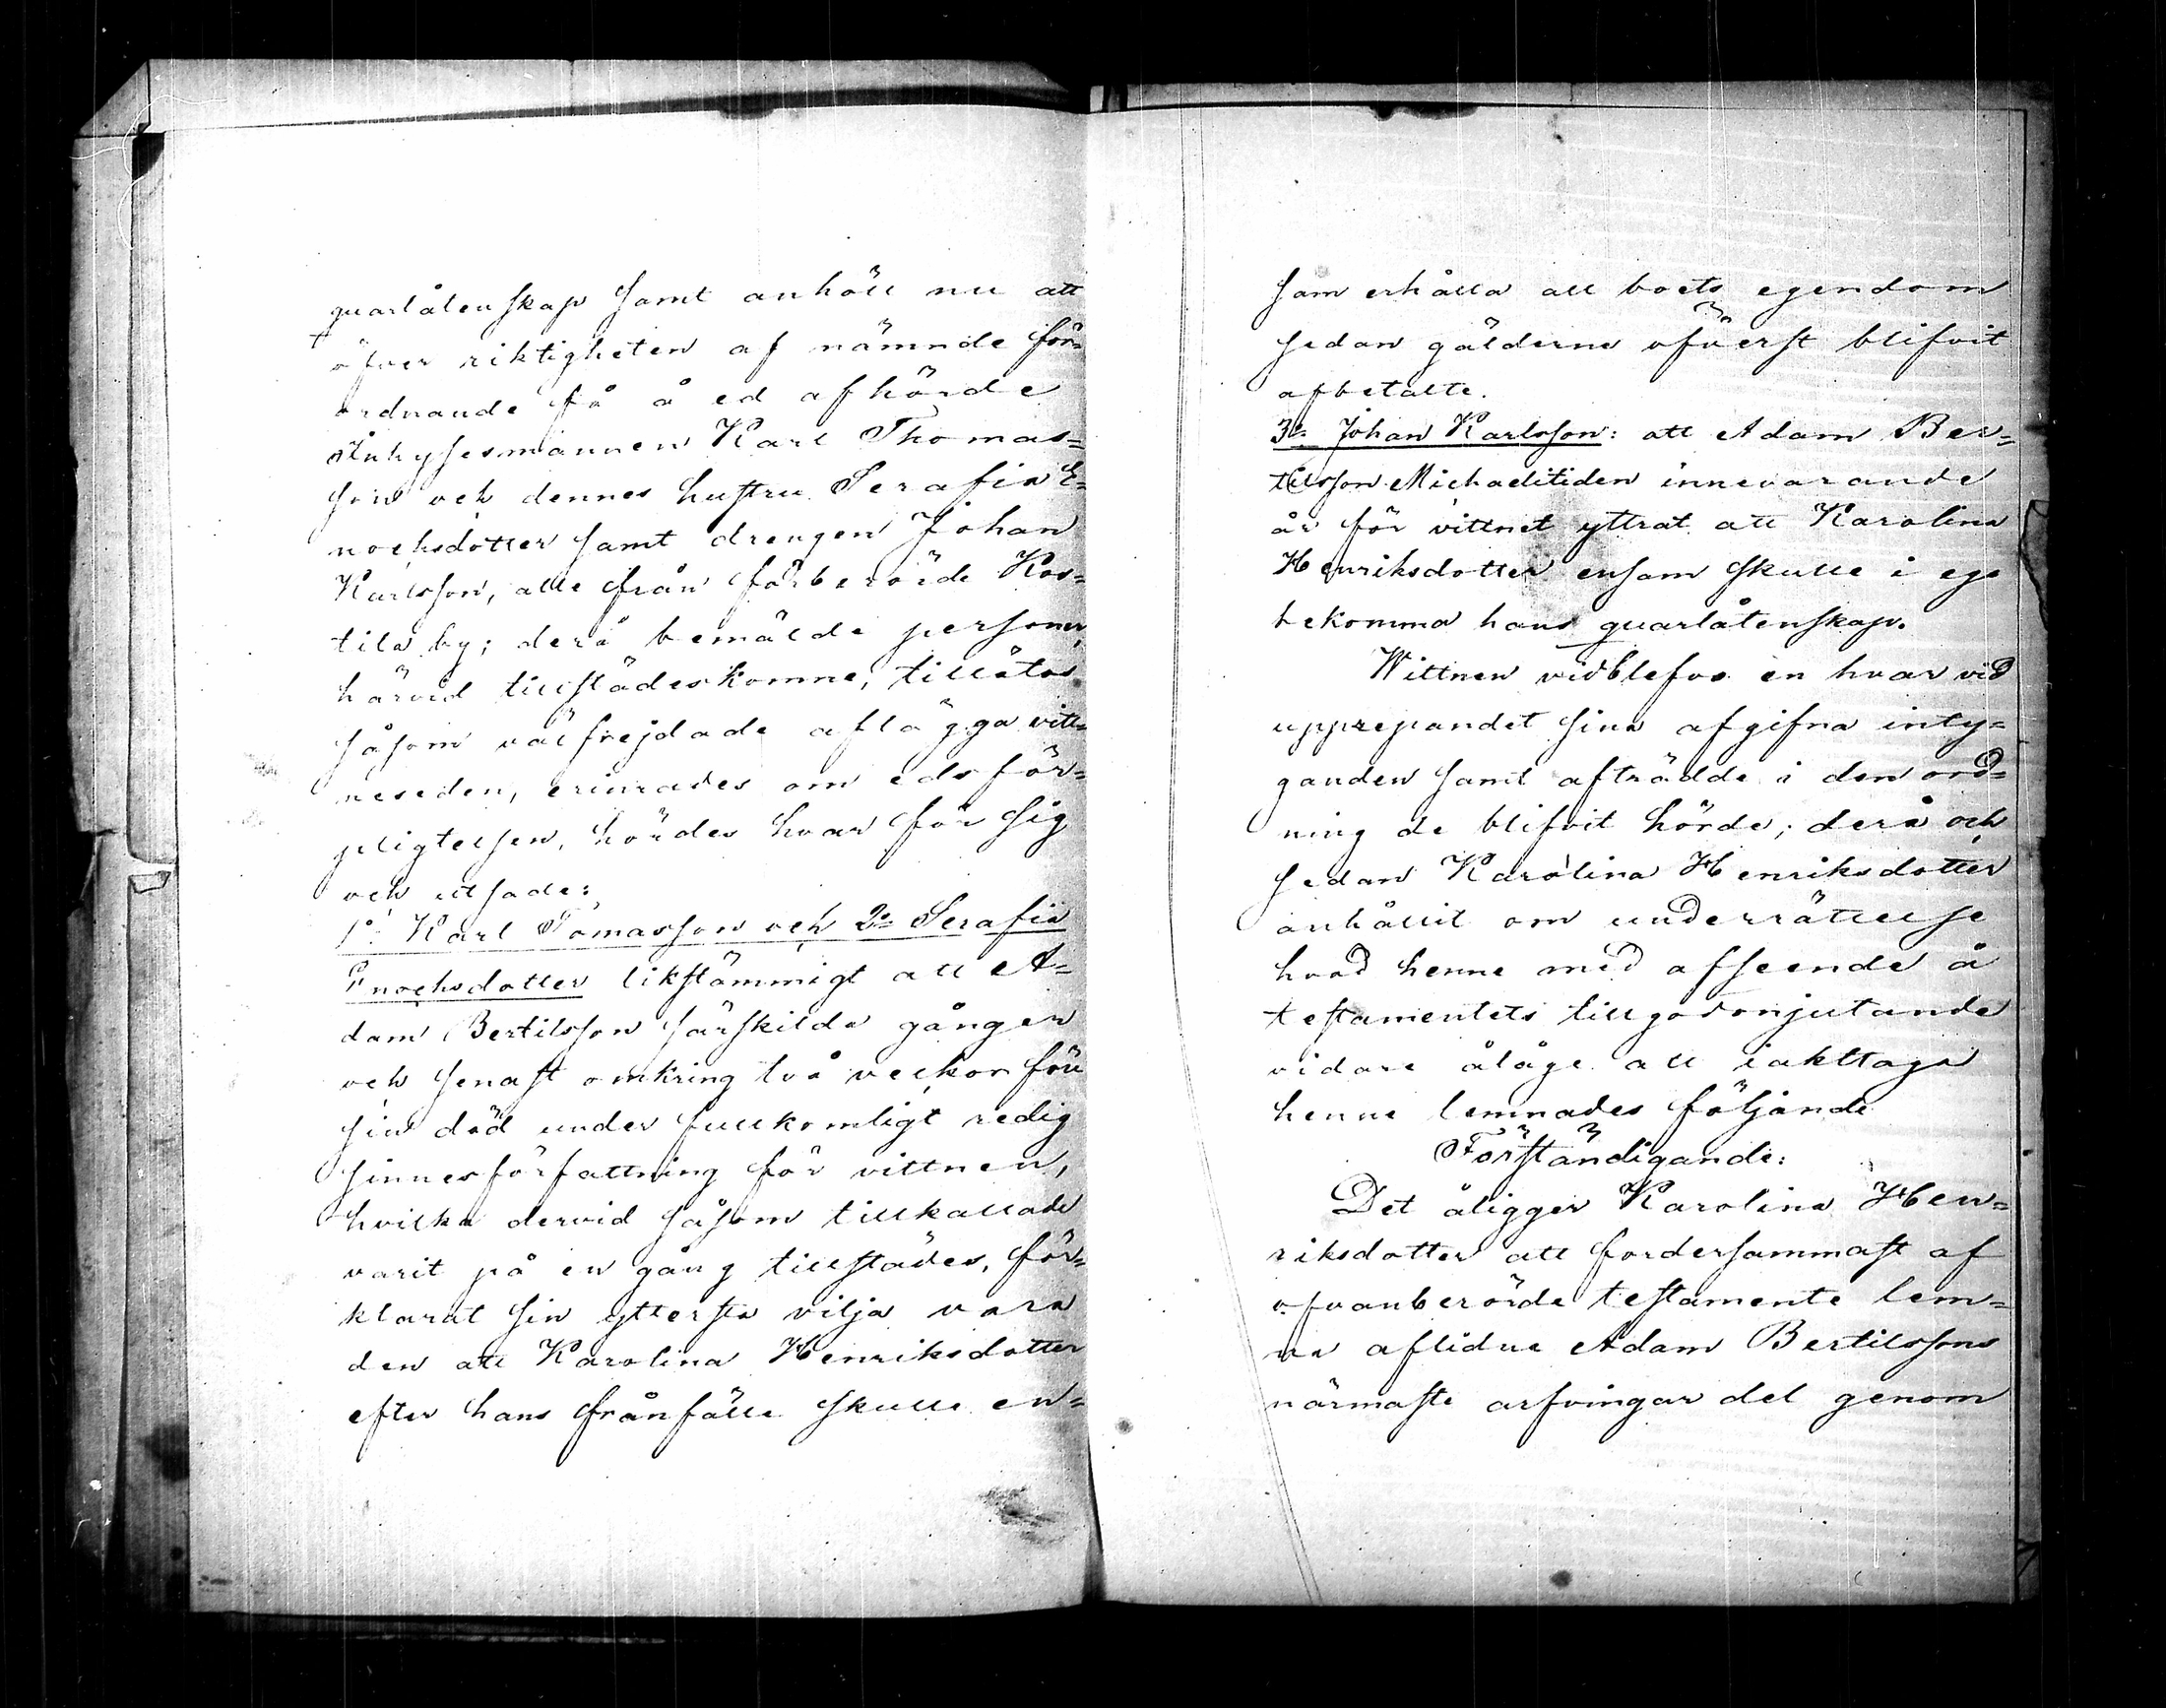 quarlåtenskap samt anhöll nu att
öfver riktigheten af nämnde för=
ordnande få å ed afhörde
Inhysesmannen Karl Thomas=
son och dennes hustru Serafia E=
nochsdotter samt drengen Johan
Karlsson, alle från förberörde Kos=
tila by; derå bemälde personer,
härvid tillstädeskomne, tillåtos
såsom välfrejdade aflägga vitt=
neseden, erinrades om eds för=
pligtelsen, hördes hvar för sig
och utsade:
1o. Karl Tomasson och 2o Serafia
Enochsdotter likstämmigt att A=
dam Bertilsson särskilda gånger
och senast omkring två veckor före
sin död under fullkomligt redig
sinnesförfattning för vittnen,
hvilka dervid såsom tillkallade
varit på en gång tillstädes, för=
klarat sin yttersta vilja vara
den att Karolina Henriksdotter
efter hans frånfälle skulle en=
sam erhålla all boets egendom
sedan gälderna öfverst blifvit
afbetalte.
3o Johan Karlsson: att Adam Ber=
tilsson Michaelitiden innevarande
år för vittnet yttrat att Karolina
Henriksdotter ensam skulle i ego
bekomma hans quarlåtenskap.
Wittnen vidblefvo en hvar vid
upprepandet sina afgifna inty=
ganden samt afträdde i den ord=
ning de blifvit hörde; derå och
sedan Karolina Henriksdotter
anhållit om underrättelse
hvad henne med afseende å
testamentets tillgodonjutande
vidare ålåge att iakttaga
henne lemnades följande
Förständigande:
Det åligger Karolina Hen=
riksdotter att fordersammast af
ofvanberörde testamente lem=
na aflidne Adam Bertilssons
närmaste arfvingar del genom